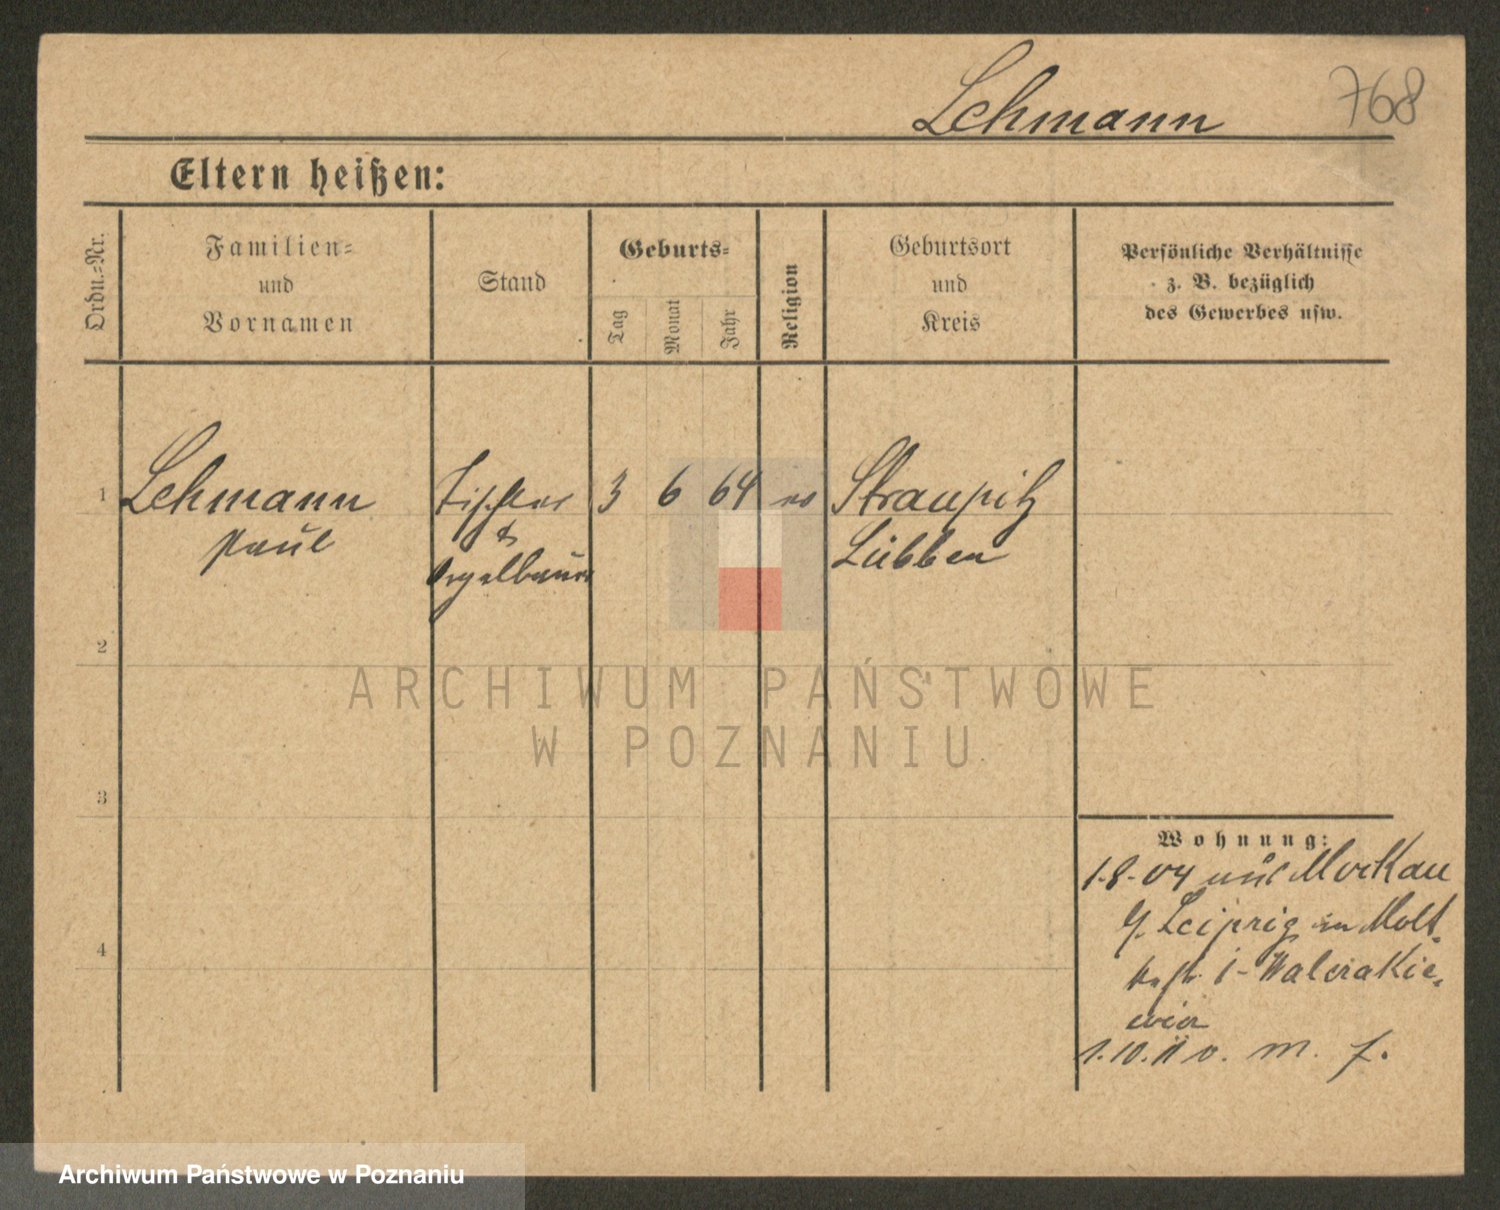 Lehmann
768
Eltern heißen:
Ordn.=Nr.
Familien=
und
Vornamen
Stand
Geburts=
Tag
Monat
Jahr
Religion
Geburtsort
und
Kreis
Persönliche Verhältnisse
z. B. bezüglich
des Gewerbes usw.
1
Lehmann
Paul
Tischler
&
Orgelbauer
3 6 64
Straupitz
Lübben
2
3
4
Wohnung:
1.8.04 aus Mockau
b. Leipzig in Molt-
kestr. 1 - Walerakie-
wicz
1.10.11 v. m. f.
ARCHIWUM PAŃSTWOWE
W POZNANIU
Archiwum Państwowe w Poznaniu